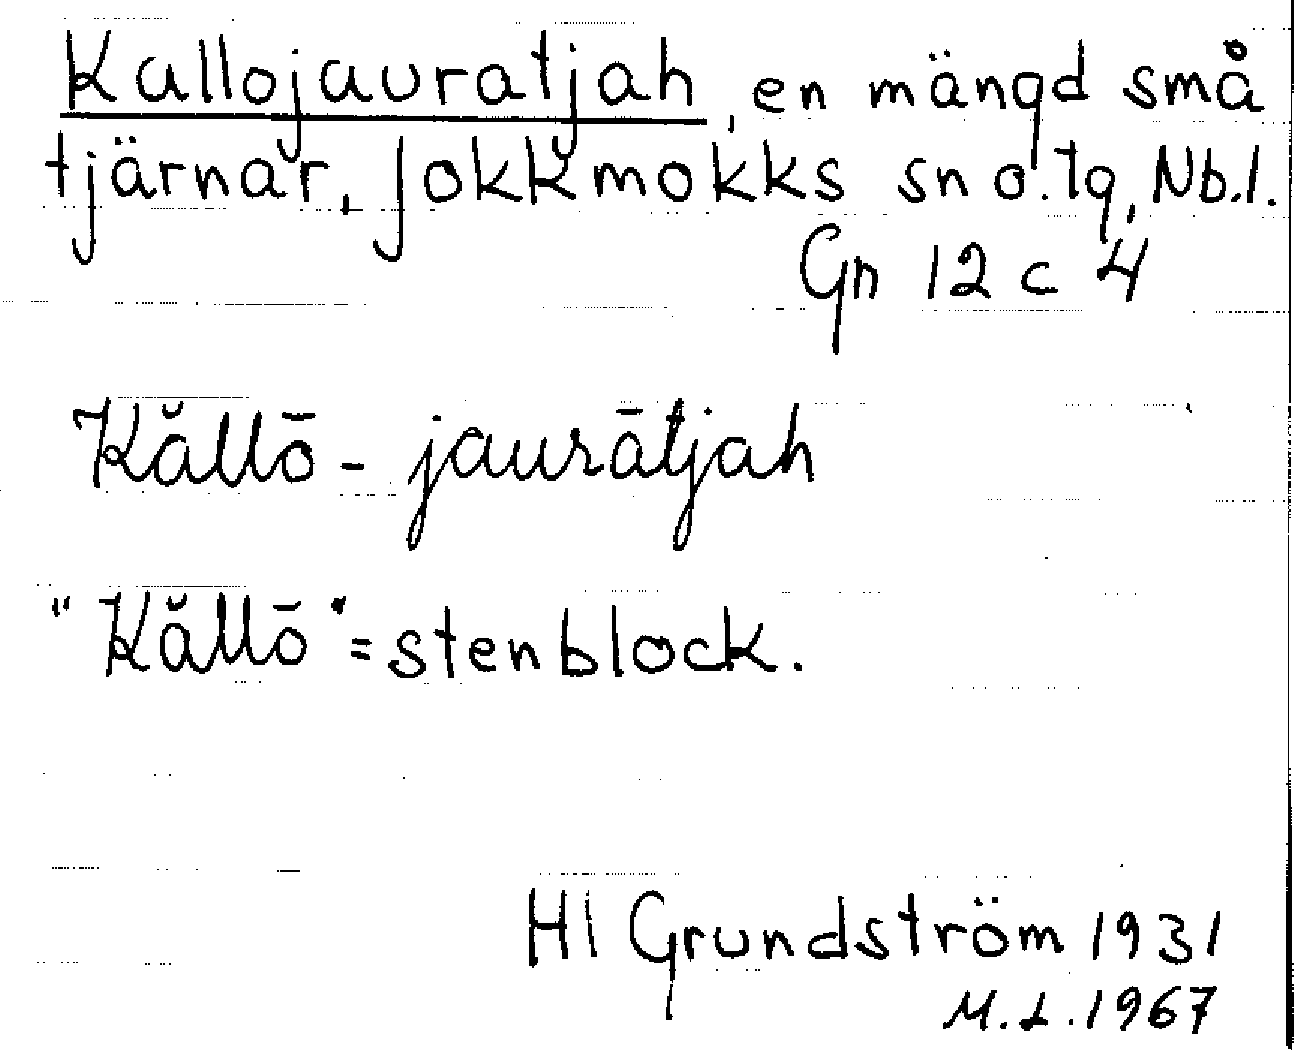 Kallojauratjah, en mängd små
tjärnar, Jokkmokks sn o. tg, Nb. l.
Gn 12 c 4
Kăllō - jaurātjah
"Kăllō" = stenblock.
Hl Grundström 1931
M.L. 1967